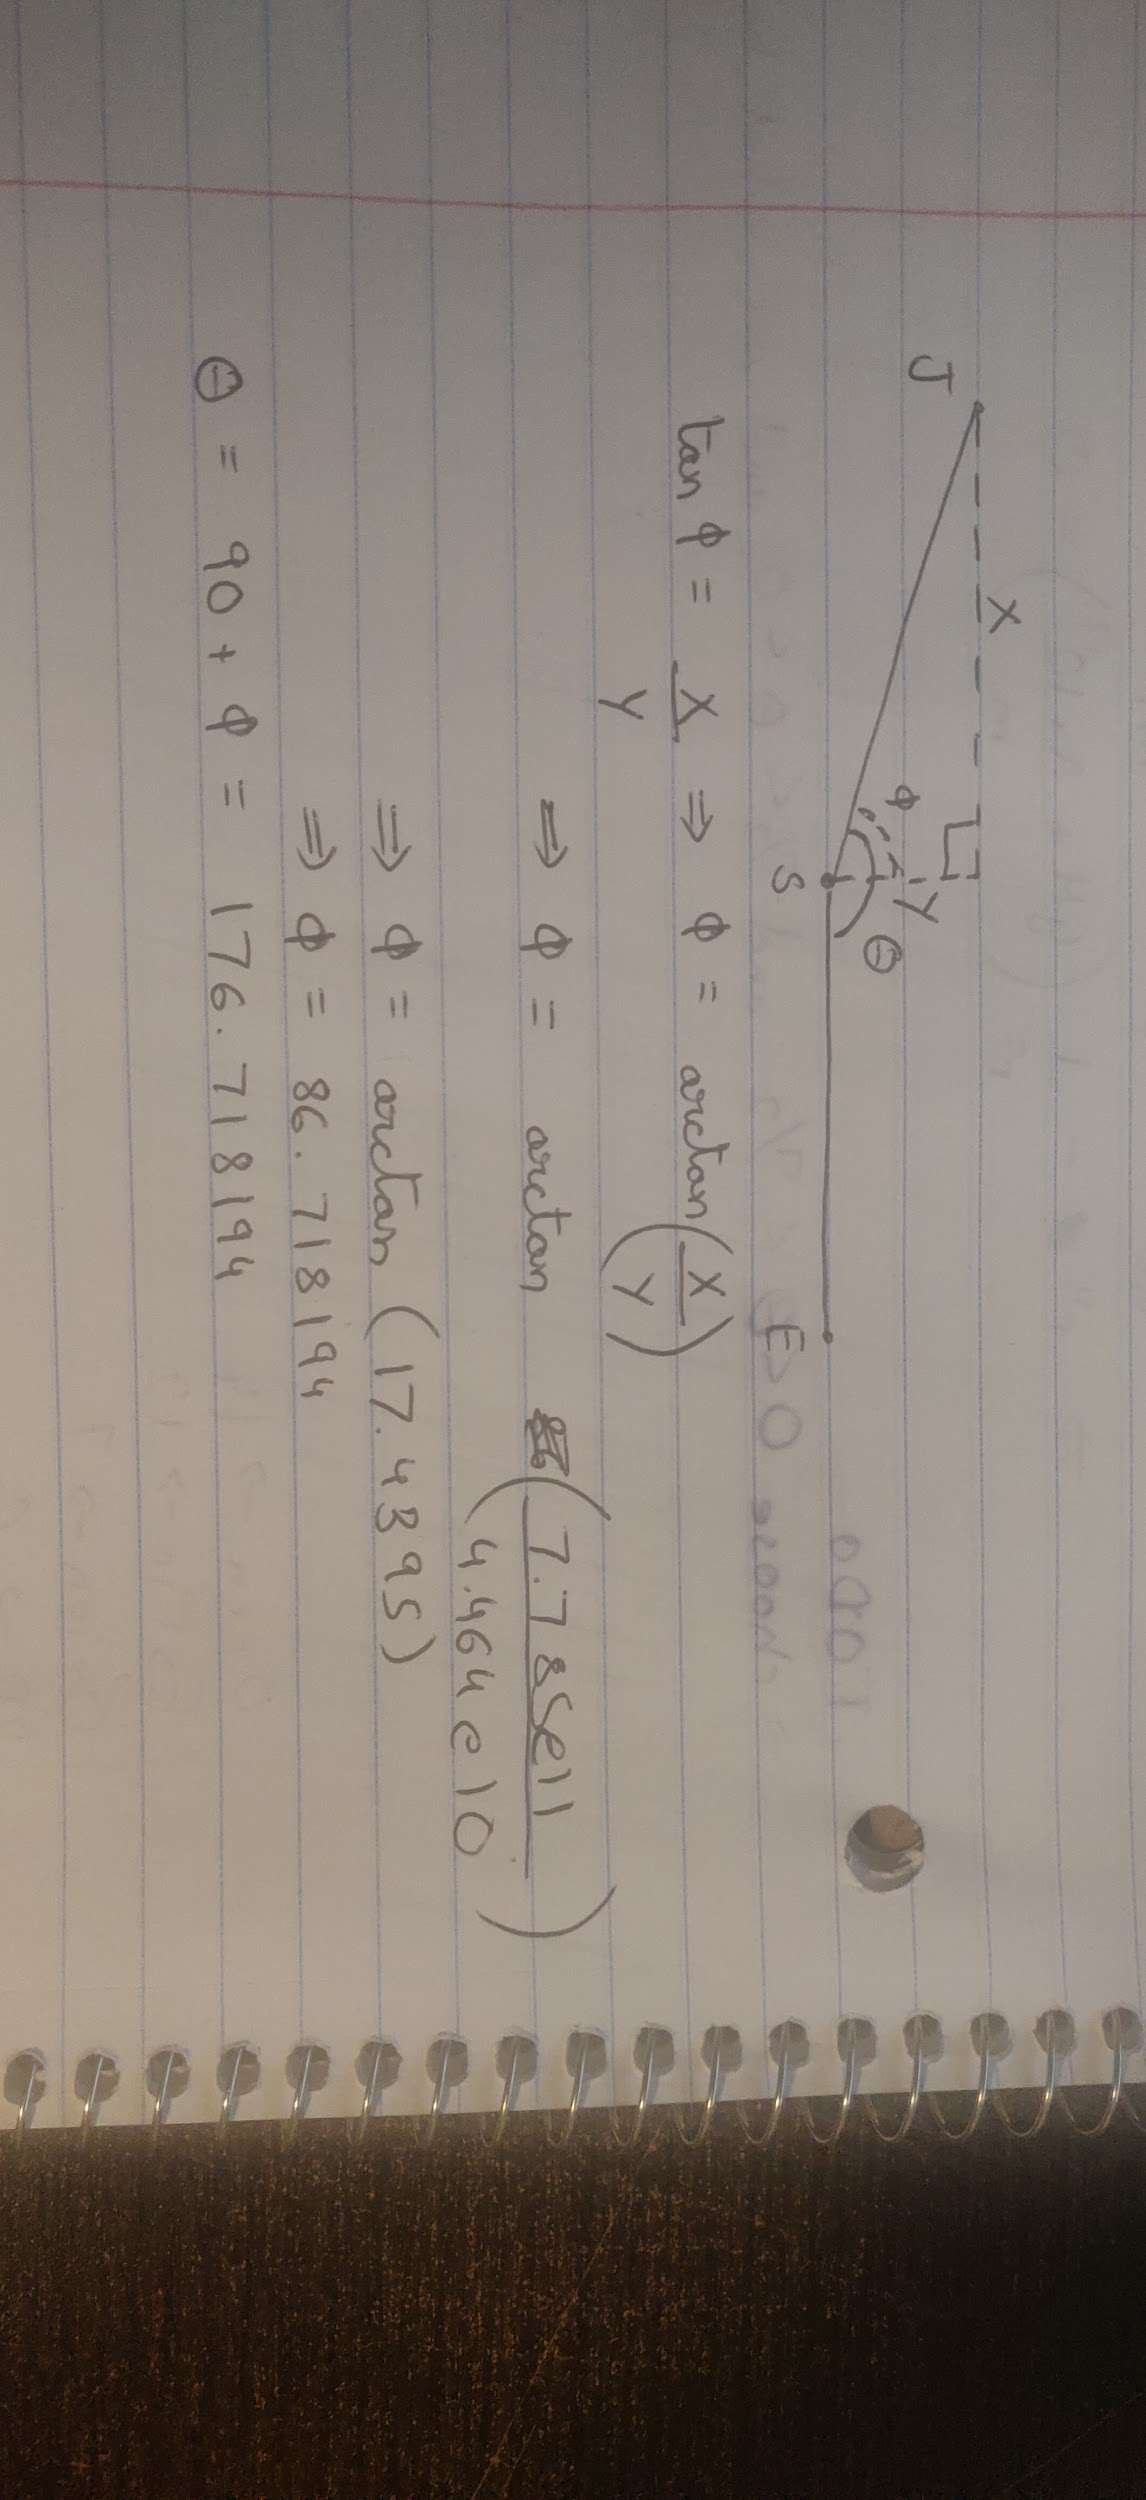 J X φ Y θ
S E
tan φ = X/Y ⇒ φ = arctan(X/Y)
⇒ φ = arctan (7.785e11/4.464e10)
⇒ φ = arctan (17.4395)
⇒ φ = 86.718194
θ = 90 + φ = 176.718194